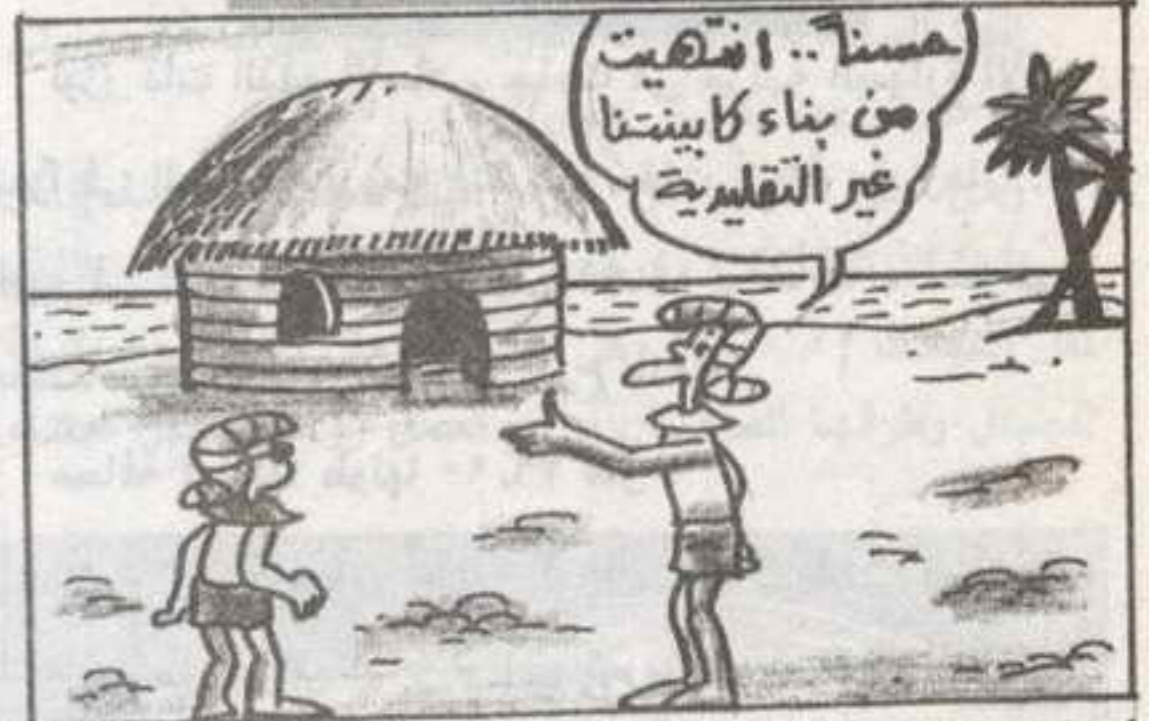 حسناً .. انتهيت
من بناء كابينتنا
غير التقليدية